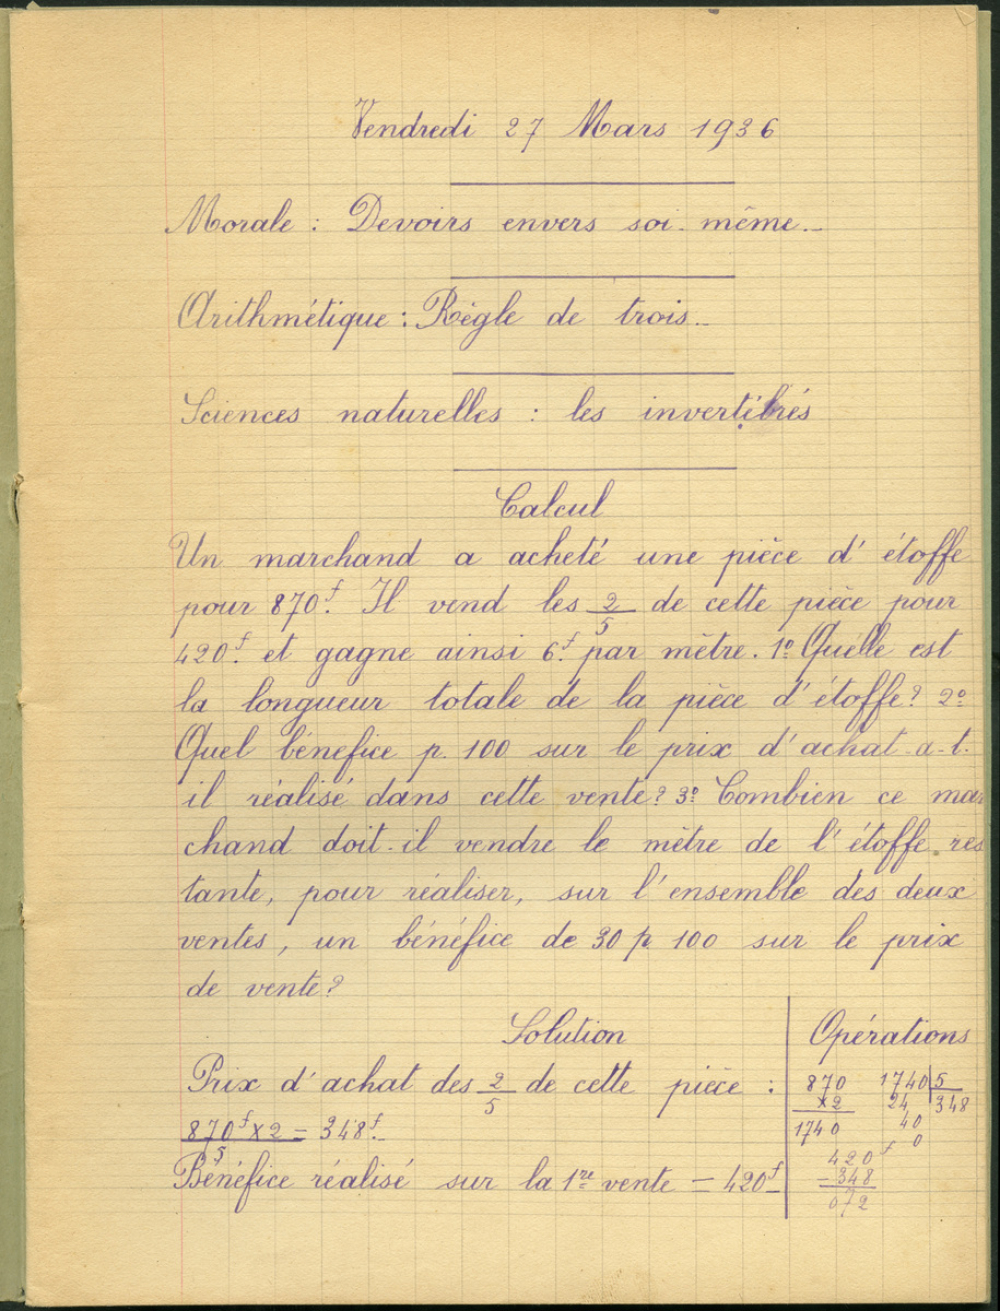 Vendredi 27 Mars 1936
Morale : Devoirs envers soi-même.
Arithmétique : Règle de trois.
Sciences naturelles : les invertébrés
Calcul
Un marchand a acheté une pièce d'étoffe
pour 870f. Il vend les 2/5 de cette pièce pour
420f. et gagne ainsi 6f. par mètre. 1º Quelle est
la longueur totale de la pièce d'étoffe? 2º
Quel bénéfice p. 100 sur le prix d'achat a-t-
il réalisé dans cette vente? 3º Combien ce mar
chand doit-il vendre le mètre de l'étoffe res
tante, pour réaliser, sur l'ensemble des deux
ventes, un bénéfice de 30 p 100 sur le prix
de vente?
Solution
Prix d'achat des 2/5 de cette pièce :
870f x 2 = 348f.
5
Bénéfice réalisé sur la 1re vente = 420f-
Opérations
870 1740 5
x2 24 348
1740 40
0
420f
-348
072